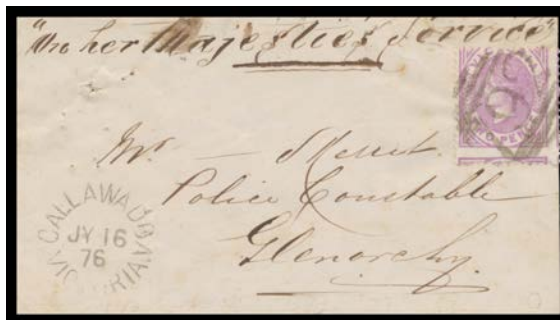 "On her Majesties Service"
Mr — Skerret
Police Constable
Glenorchy
CALLAWADDA
JY 16
76
VICTORIA
TWO PENCE